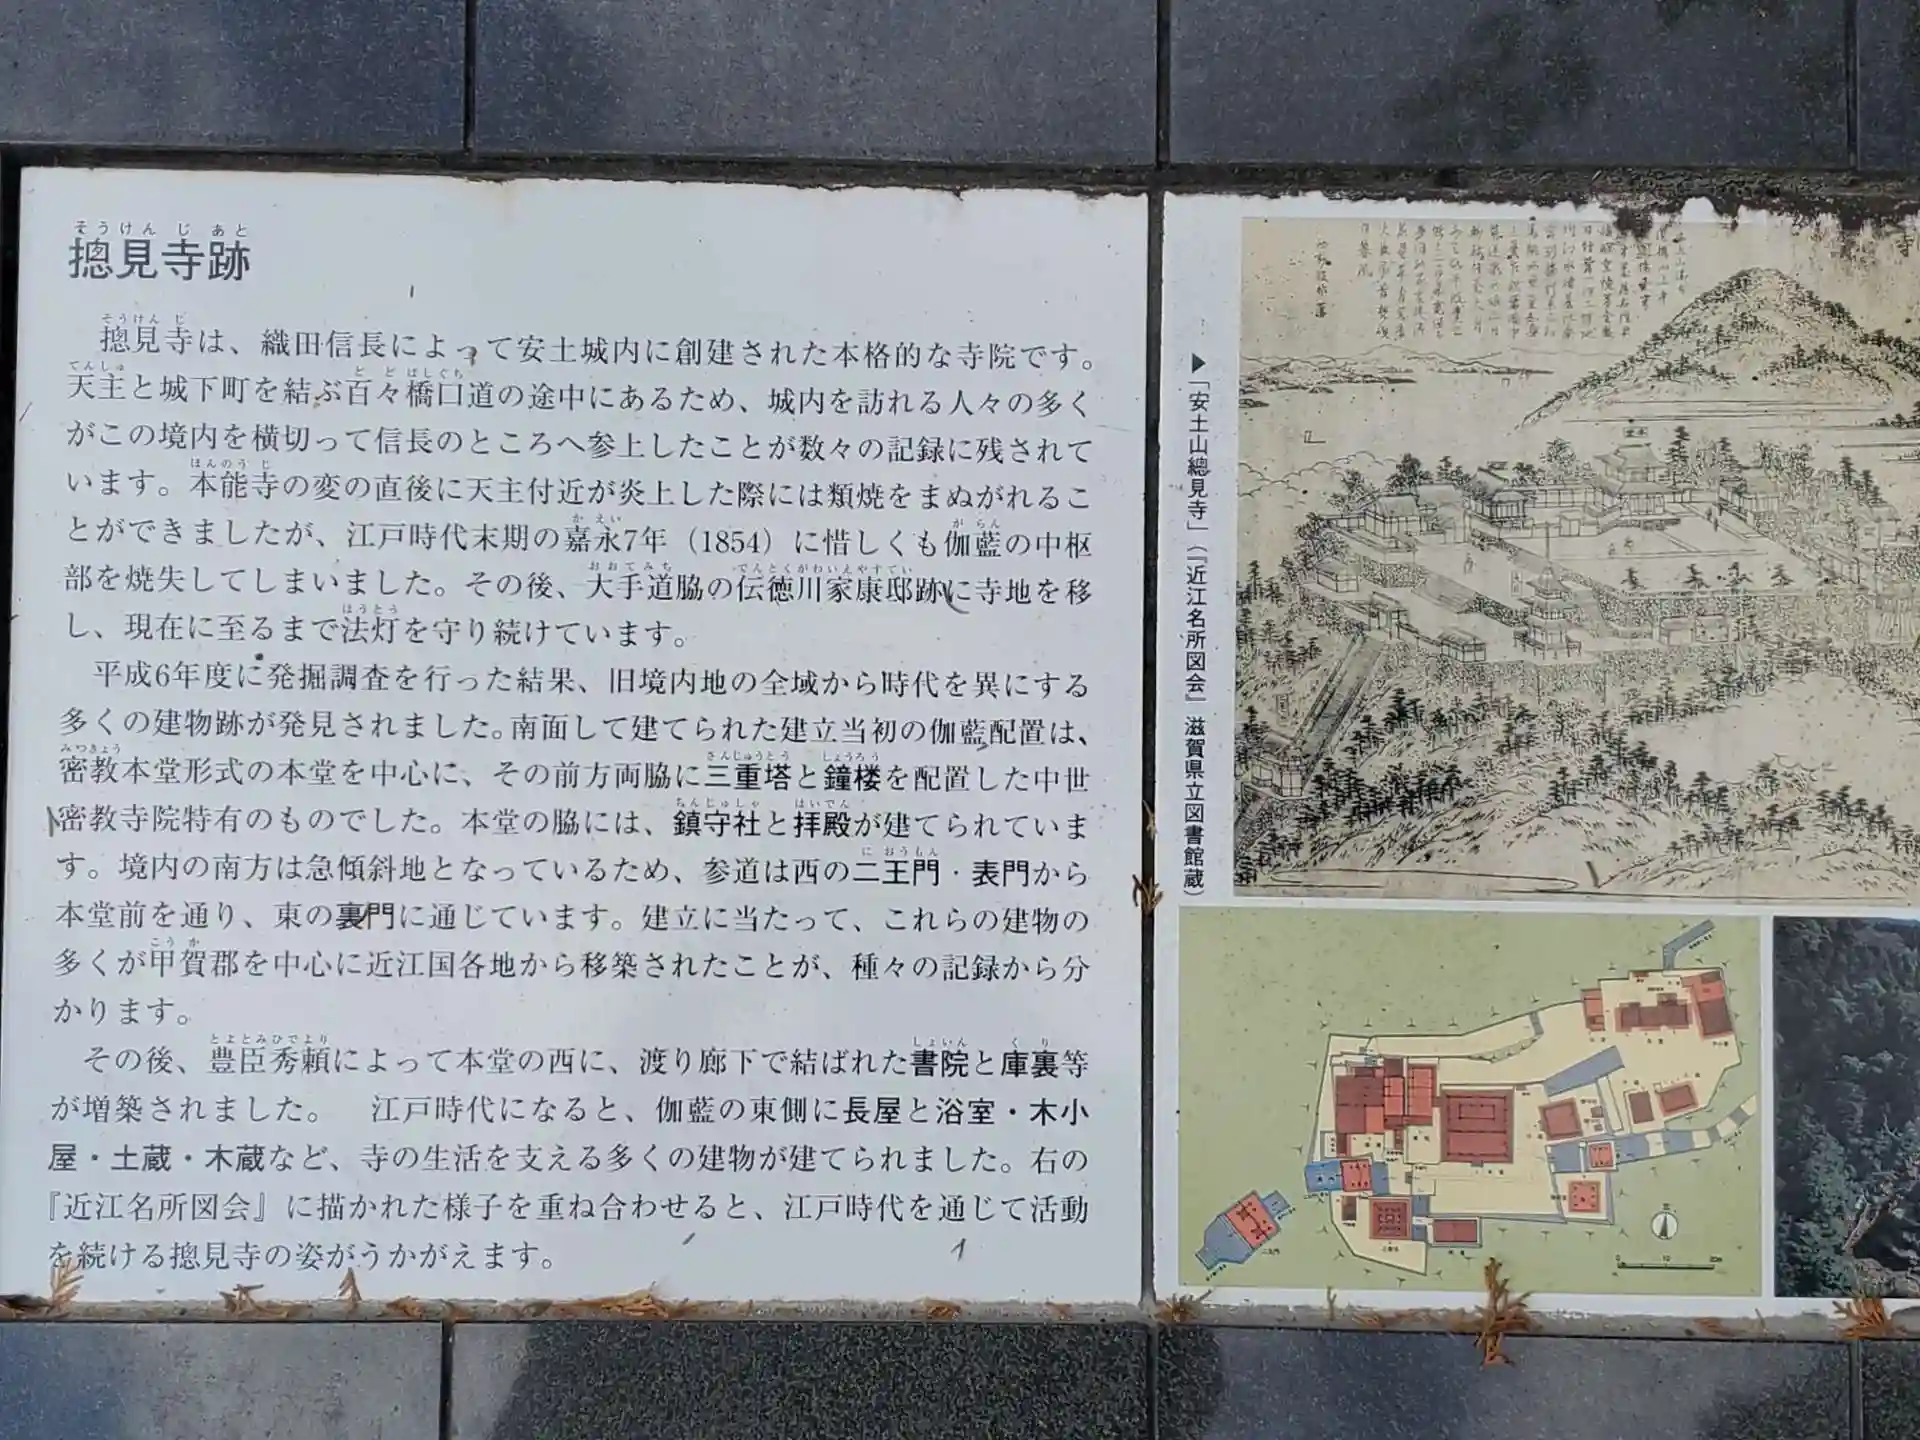 そうけん じ あと
摠見寺跡
摠見寺は、織田信長によって安土城内に創建された本格的な寺院です。
天主と城下町を結ぶ百々橋口道の途中にあるため、城内を訪れる人々の多く
がこの境内を横切って信長のところへ参上したことが数々の記録に残されて
います。本能寺の変の直後に天主付近が炎上した際には類焼をまぬがれるこ
とができましたが、江戸時代末期の嘉永7年（1854）に惜しくも伽藍の中枢
部を焼失してしまいました。その後、大手道脇の伝徳川家康邸跡に寺地を移
し、現在に至るまで法灯を守り続けています。
平成6年度に発掘調査を行った結果、旧境内地の全域から時代を異にする
多くの建物跡が発見されました。南面して建てられた建立当初の伽藍配置は、
密教本堂形式の本堂を中心に、その前方両脇に三重塔と鐘楼を配置した中世
密教寺院特有のものでした。本堂の脇には、鎮守社と拝殿が建てられていま
す。境内の南方は急傾斜地となっているため、参道は西の二王門・表門から
本堂前を通り、東の裏門に通じています。建立に当たって、これらの建物の
多くが甲賀郡を中心に近江国各地から移築されたことが、種々の記録から分
かります。
その後、豊臣秀頼によって本堂の西に、渡り廊下で結ばれた書院と庫裏等
が増築されました。 江戸時代になると、伽藍の東側に長屋と浴室・木小
屋・土蔵・木蔵など、寺の生活を支える多くの建物が建てられました。右の
『近江名所図会』に描かれた様子を重ね合わせると、江戸時代を通じて活動
を続ける摠見寺の姿がうかがえます。
▶「安土山總見寺」（『近江名所図会』 滋賀県立図書館蔵）